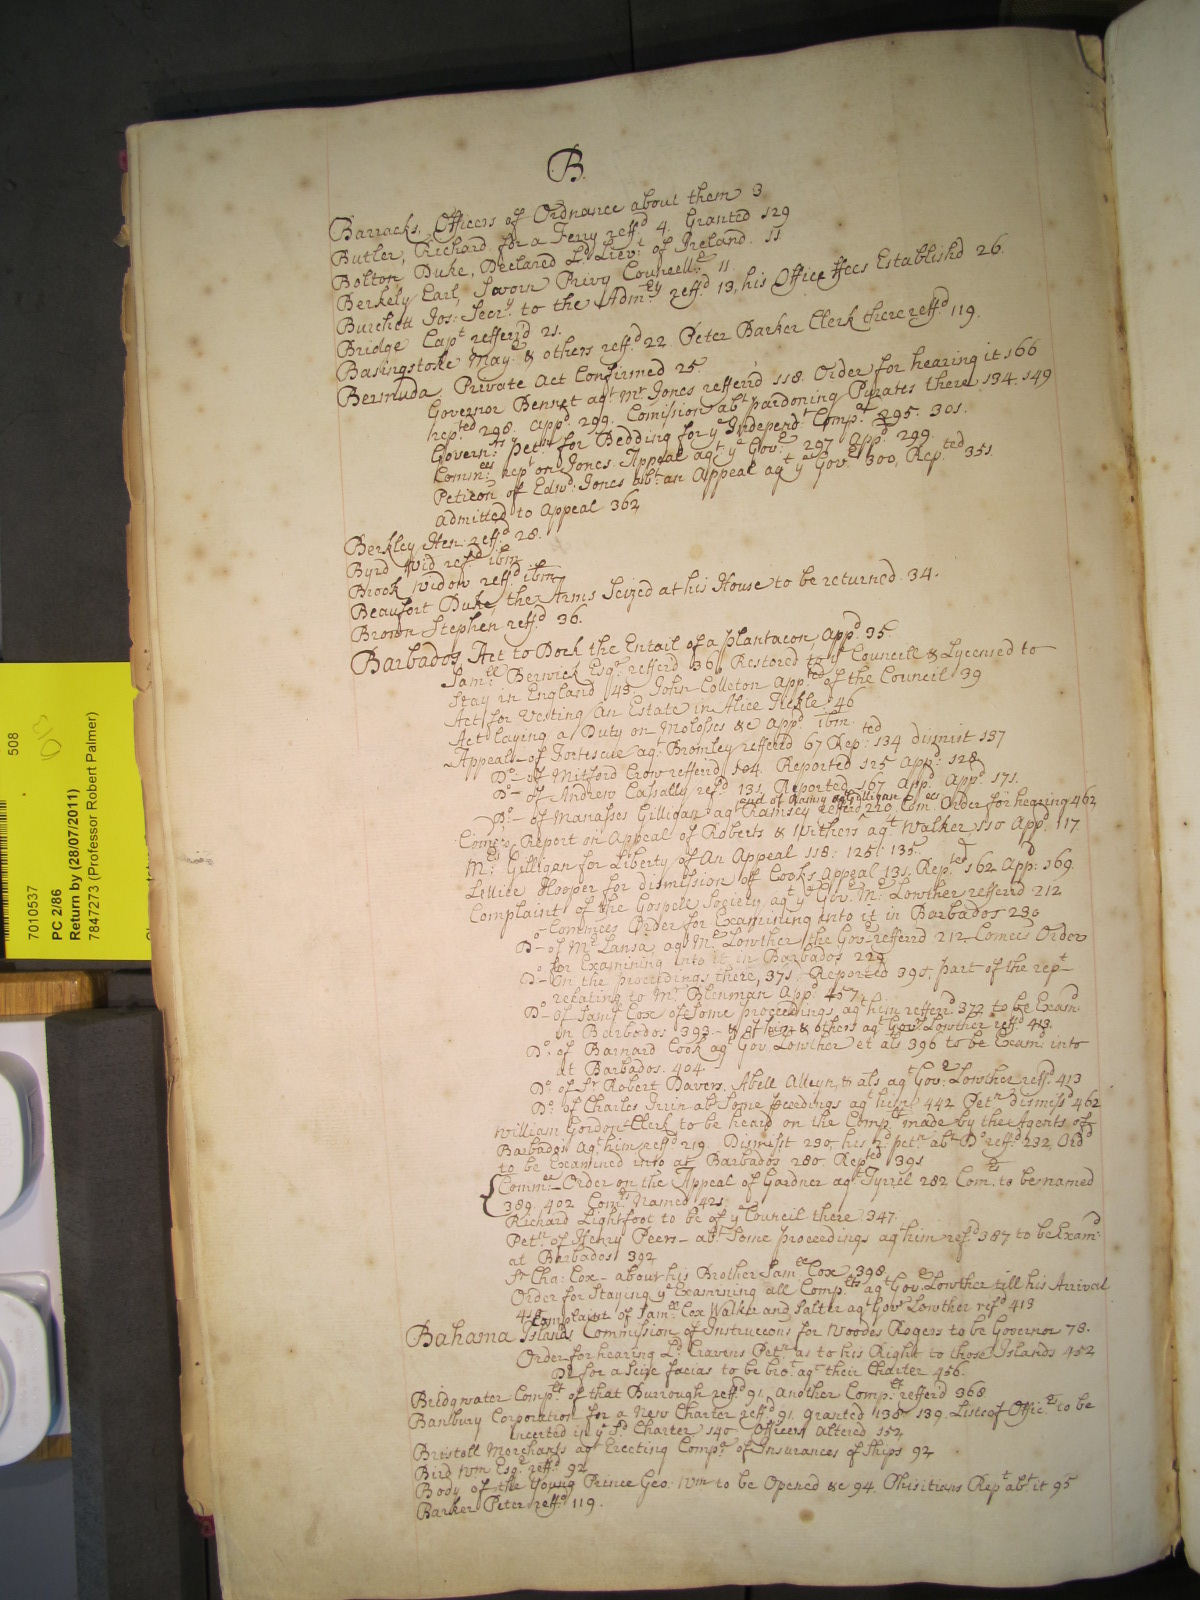 B
Barracks, Officers of Ordnance about them 3
Butler, Richard, for a Ferry reff.d 4. Granted 129
Bolton Duke, Declared L.d Liev.t of Ireland. 11
Berkely Earl, Sworn Privy Councell.r 11
Burchett Jos: Secr.y to the Adm.ty reff.d 13, his Office ffees Establishd 26.
Bridge Cap.t refferrd 21.
Basingstoke May.r & others reff.d 22 Peter Barker Clerk there reff.d 119.
Bermuda, Private Act Confirmed 25.
Governor Bennet ag.t M.r Jones refferrd 118. Order for hearing it 166
rep.ted 298. app.d 299. Comission ab.t pardoning Pyrates there 134. 149
Govern.rs pet.n for Bedding for y.e Independ.t Comp.a 295. 301.
Comm.ees rep.t on Jones Appeal ag.t y.e Gov.r 297 App.d 299.
Peticon of Edw.d Jones ab.t an Appeal ag.t y.e Gov.r 300, Rep.ted 351
admitted to Appeal 362
Berkley Hen: reff.d 28.
Byrd Wid ref.d ibm
Brook Widow reff.d ibm
Beaufort Duke, the Arms Seized at his House to be returned. 34.
Brown Stephen reff.d 36.
Barbados, Act to Dock the Entail of a plantacon, App.d 35.
Sam.ll Berwick Esq.r refferrd 36, Restored to y.e Councill & Lycensed to
Stay in England 45 John Colleton app.ted of the Council 39
Act for Vesting an Estate in Alice Tickle 46
Act laying a Duty on Molosses &c app.d ibm.
Appeals of Fortescue ag.t Bromley refferrd 67 Rep.ted 134 dismist 137
D.o of Mitford Crow refferrd 104. Reported 125 App.d 128
D.o of Andrew Cassalls ref.d 131 Reported 167 App.d App.d 171.
and of Ramsey ag.t Gilligan
D.o of Manasses Gilligan ag.t Ramsey refferrd 220 Com.ees Order for hearing 462
Com.ees Report on Appeal of Roberts & Withers ag.t Walker 110 App.d 117
M.rs Gilligan for Liberty of An Appeal 118: 125: 135
Lettice Hooper for dismission of Cooks Appeal 131. Rep.ted 162 App: 169.
Complaint of the Gospell Society ag.t y.e Gov.r M.r Lowther refferrd 212
Commees Order for Examining into it in Barbados 230
D.o of M.r Lansa ag.t M.r Lowther the Gov.r refferrd 212 Comees Order
for Examining into it in Barbados 229
D.o On the proceedings there, 371. Reported 390, part of the rep.t
relating to M.r Blenman App.d 457.
D.o of Sam.l Cox of Some proceedings ag.t him refferrd 372 to be Exam.d
in Barbados 393 & of him & others ag.t Gov.r Lowther reff.d 413.
D.o of Barnard Cook ag.t Gov. Lowther et als 396 to be Exam.d into
at Barbados. 404
D.o of S.r Robert Davers, Abell Alleyn, & als ag.t Gov.r Lowther reff.d 413
D.o of Charles Irvin ab.t Some pceedings ag.t him 442 Pet.n dismiss.d 462
William Gordon Clerk to be heard on the Comp.t made by the Agents of
Barbados Ag.t him reff.d 219 Dismist 230, his 2.d pet.n ab.t D.o reff.d 232 Ord.d
to be Examined into at Barbados 280 Rep.ted 391
Comm.ees Order on the Appeal of Gardner ag.t Tyrrel 282 Com.rs to be named
389 402 Com.rs Named 421
Richard Lightfoot to be of y.e Council there 347.
Pet.n of Henry Peers ab.t Some proceedings ag him ref.d 387 to be Exam.d
at Barbados 392
S.r Cha: Cox about his Brother Sam.ll Cox 398
Order for Staying y.e Examining all Comp.ts ag.t Gov.r Lowther till his Arrival
Complaint of Sam.ll Cox Walker and Salter ag.t Gov.r Lowther ref.d 413
Bahama Islands Commission & Instruccons for Woodes Rogers to be Governor 78.
Order for hearing L.d Cravens Pet.n as to his Right to those Islands 452
D.o for a Scire facias to be bro.t ag.t their Charter 456.
Bridgwater Comp.lt of that Burrough reff.d 91 another Comp.lt refferrd 368
Banbury Corporation for a New Charter reff.d 91. Granted 138. 139. Liste of Offic.rs to be
incerted in y.e S.d Charter 140 Officers altered 152
Bristoll Merchants ag.t Erecting Comp.s of Insurances of Ships 92
Bird Wm Esq.r reff.d 92
Body of the Young Prince Geo. Wm to be Opened &c 94. Phisitians Rep.t ab.t it 95
Barker Peter reff.d 119.
508
7010537
PC 2/86
Return by (28/07/2011)
7847273 (Professor Robert Palmer)